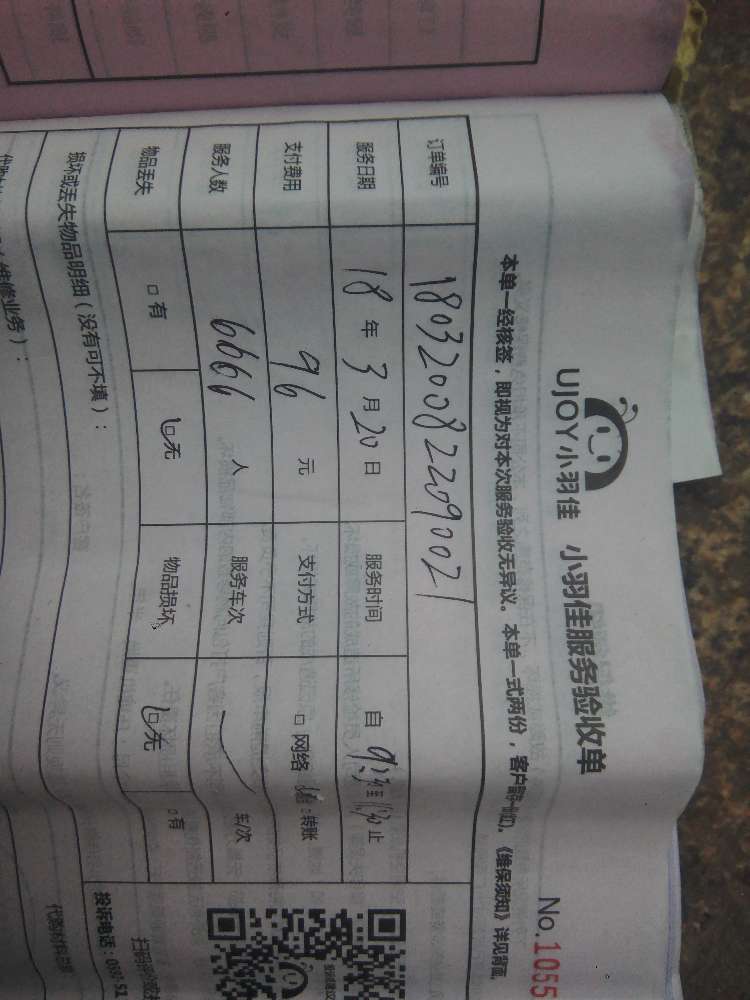 UJOY小羽佳 小羽佳服务验收单
No.1055
本单一经核签，即视为对本次服务验收无异议。本单一式两份，客户 《维保须知》详见背面
订单编号 1803200822090021
服务日期 18年3月20日 服务时间 自 止
支付费用 96元 支付方式 □网络 转账
服务人数 6666人 服务车次 车/次
物品丢失 □有 □无 物品损坏 □无 □有
损坏或丢失物品明细（没有可不填）：
维修业务）：
投诉电话：